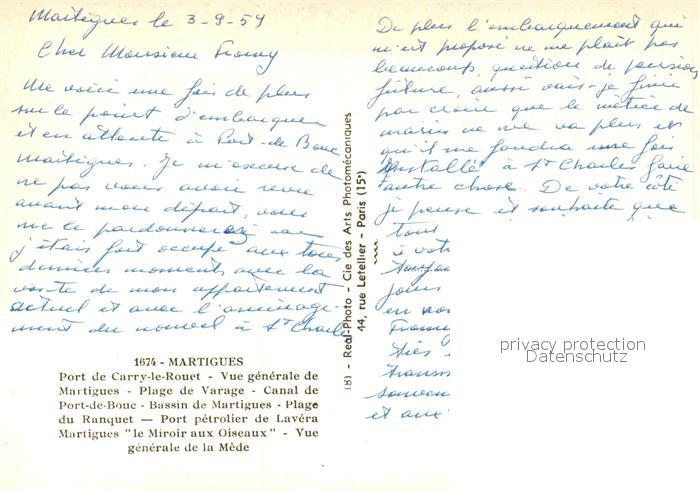 Martigues le 3-9-59
Cher Monsieur
Me voici une fois de plus
sur le point d'embarquer
et en attente à Port-de Bouc
Martigues. Je m'excuse de
ne pas vous avoir revu
avant mon départ, vous
me le pardonnerez car
j'étais fort occupé aux tous
derniers moments avec la
vente de mon appartement
actuel et avec l'aménage-
ment du nouvel à St Charles
1674 - MARTIGUES
Port de Carry-le-Rouet - Vue générale de
Martigues - Plage de Varage - Canal de
Port-de-Bouc - Bassin de Martigues - Plage
du Ranquet — Port pétrolier de Lavéra
Martigues "le Miroir aux Oiseaux" - Vue
générale de la Mède
(8) - Real-Photo - Cie des Arts Photomécaniques
44, rue Letellier - Paris (15e)
De plus l'embarquement qui
m'est proposé ne me plait pas
beaucoup, question de
future, aussi vais-je finir
par croire que le métier de
marin ne me va plus et
qu'il me faudra une fois
installé à St Charles faire
autre chose. De votre côté
je pense et souhaite que
tout
à vot
toujou
jours
en vo
Très
transm
souven
et aux
privacy protection
Datenschutz